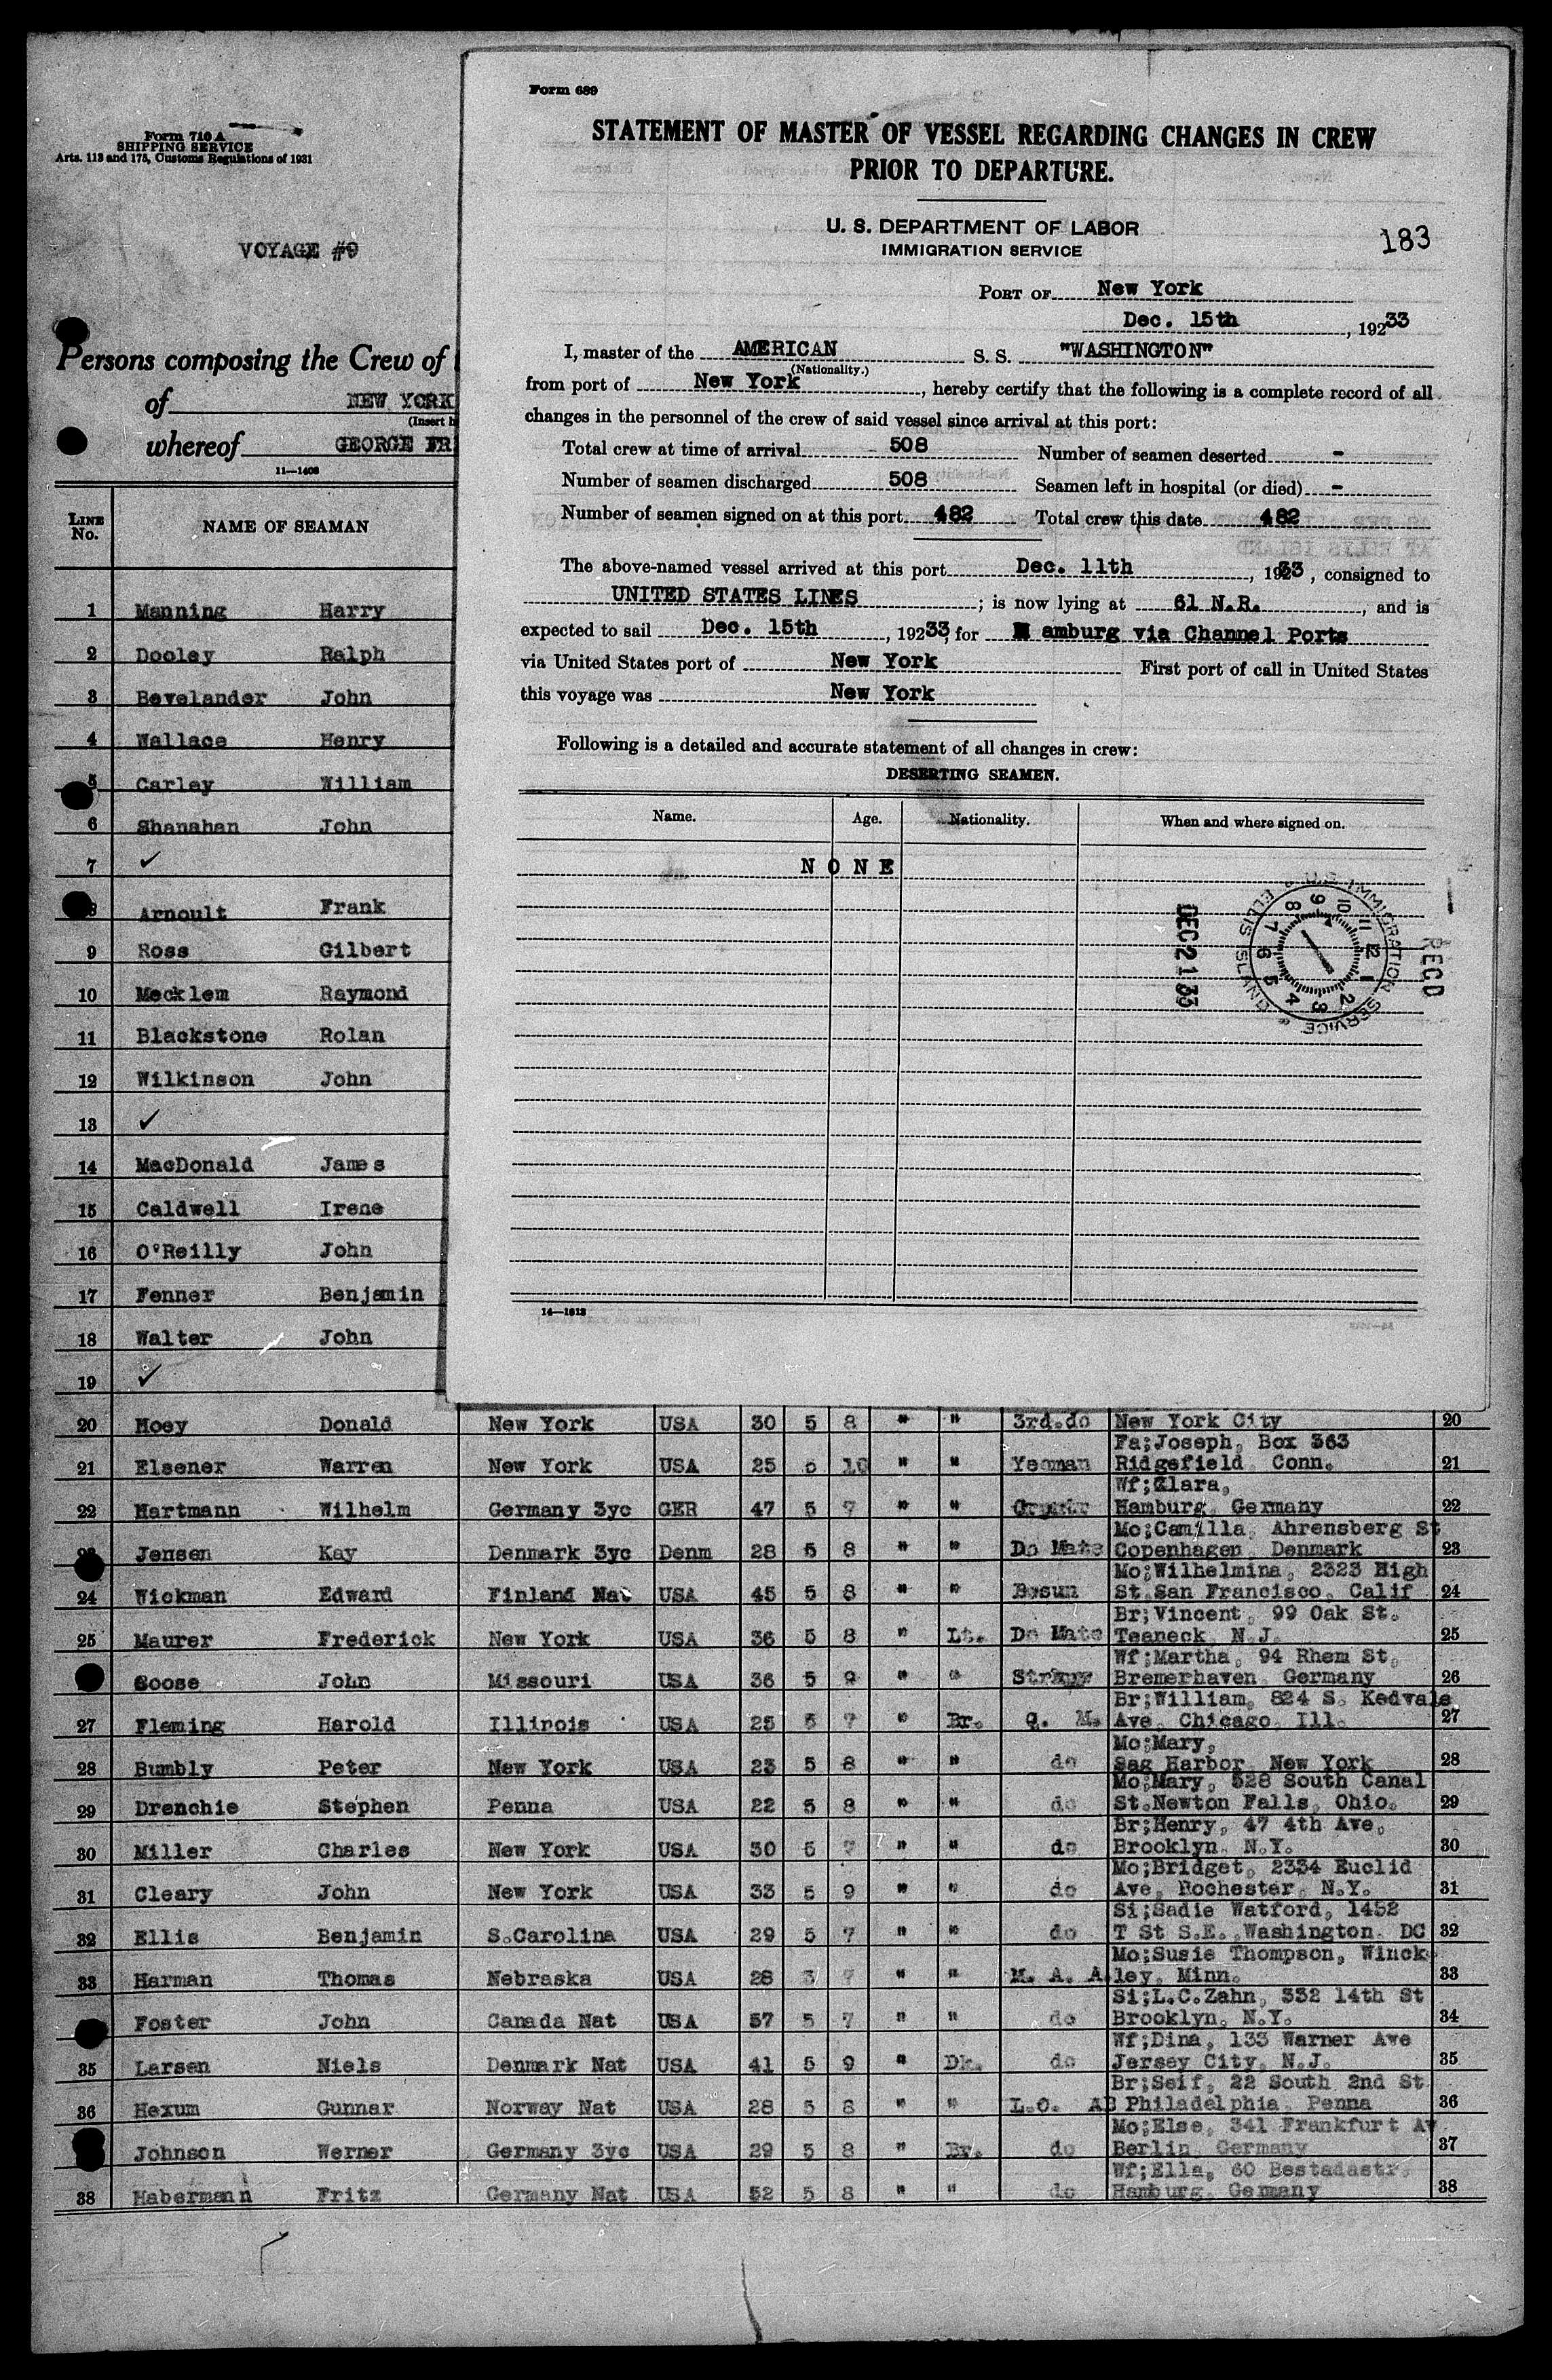 Form 710 A
SHIPPING SERVICE
Arts. 113 and 175, Customs Regulations of 1931
VOYAGE #9
Persons composing the Crew of
of NEW YORK
(Insert h
whereof GEORGE FR
11—1406
LINE No. NAME OF SEAMAN
1 Manning Harry
2 Dooley Ralph
3 Bevelander John
4 Wallace Henry
5 Carley William
6 Shanahan John
7 ✓
8 Arnoult Frank
9 Ross Gilbert
10 Mecklem Raymond
11 Blackstone Rolan
12 Wilkinson John
13 ✓
14 MacDonald James
15 Caldwell Irene
16 O'Reilly John
17 Fenner Benjamin
18 Walter John
19 ✓
Form 689
STATEMENT OF MASTER OF VESSEL REGARDING CHANGES IN CREW
PRIOR TO DEPARTURE.
U. S. DEPARTMENT OF LABOR
IMMIGRATION SERVICE
183
PORT OF New York
Dec. 15th, 19233
I, master of the AMERICAN S. S. "WASHINGTON"
(Nationality.)
from port of New York, hereby certify that the following is a complete record of all
changes in the personnel of the crew of said vessel since arrival at this port:
Total crew at time of arrival 508 Number of seamen deserted -
Number of seamen discharged 508 Seamen left in hospital (or died) -
Number of seamen signed on at this port 482 Total crew this date 482
The above-named vessel arrived at this port Dec. 11th, 1933, consigned to
UNITED STATES LINES; is now lying at 61 N.R., and is
expected to sail Dec. 15th, 19233, for Hamburg via Channel Ports
via United States port of New York First port of call in United States
this voyage was New York
Following is a detailed and accurate statement of all changes in crew:
DESERTING SEAMEN.
Name. Age. Nationality. When and where signed on.
N O N E
DEC 21 33
U.S. IMMIGRATION SERVICE ELLIS ISLAND
1 2 3 4 5 6 7 8 9 10 11 12
RECD
14—1613
20 Hoey Donald New York USA 30 5 8 " " 3rd.do New York City 20
21 Elsener Warren New York USA 25 10 " " Yeoman Fa;Joseph, Box 363
Ridgefield Conn. 21
22 Hartmann Wilhelm Germany 3yc GER 47 5 7 " " Wf;Clara,
Hamburg, Germany 22
Jensen Kay Denmark 3yc Denm 28 5 8 " " Do Mate Mo;Camilla, Ahrensberg St
Copenhagen Denmark 23
24 Wickman Edward Finland Nat USA 45 5 8 " " Bosun Mo;Wilhelmina, 2323 High
St.San Francisco, Calif 24
25 Maurer Frederick New York USA 36 5 8 " Lt. Do Mate Br;Vincent, 99 Oak St.
Teaneck, N.J. 25
Goose John Missouri USA 36 5 9 " " Wf;Martha, 94 Rhem St,
Bremerhaven, Germany 26
27 Fleming Harold Illinois USA 25 5 7 " Br. Q. M. Br;William, 824 S. Kedvale
Ave, Chicago, Ill. 27
28 Bumbly Peter New York USA 23 5 8 " " do Mo;Mary,
Sag Harbor, New York 28
29 Drenchie Stephen Penna USA 22 5 8 " " do Mo;Mary, 528 South Canal
St.Newton Falls, Ohio. 29
30 Miller Charles New York USA 30 5 7 " " do Br;Henry, 47 4th Ave,
Brooklyn, N.Y. 30
31 Cleary John New York USA 33 5 9 " " do Mo;Bridget, 2334 Euclid
Ave, Rochester, N.Y. 31
32 Ellis Benjamin S.Carolina USA 29 5 7 " " do Si;Sadie Watford, 1452
T St S.E. Washington, DC 32
33 Harman Thomas Nebraska USA 28 7 " " M. A. A. Mo;Susie Thompson, Winck
ley, Minn. 33
Foster John Canada Nat USA 57 5 7 " " do Si;L.C.Zahn, 332 14th St
Brooklyn, N.Y. 34
35 Larsen Niels Denmark Nat USA 41 5 9 " Dk. do Wf;Dina, 133 Warner Ave
Jersey City, N.J. 35
36 Hexum Gunnar Norway Nat USA 28 5 8 " " L.O. AB Br;Seif, 22 South 2nd St
Philadelphia, Penna 36
Johnson Werner Germany 3yc USA 29 5 8 " Br. do Mo;Else, 341 Frankfurt Av
Berlin Germany 37
38 Habermann Fritz Germany Nat USA 52 5 8 " " do Wf;Ella, 60 Bestadastr.
Hamburg, Germany 38